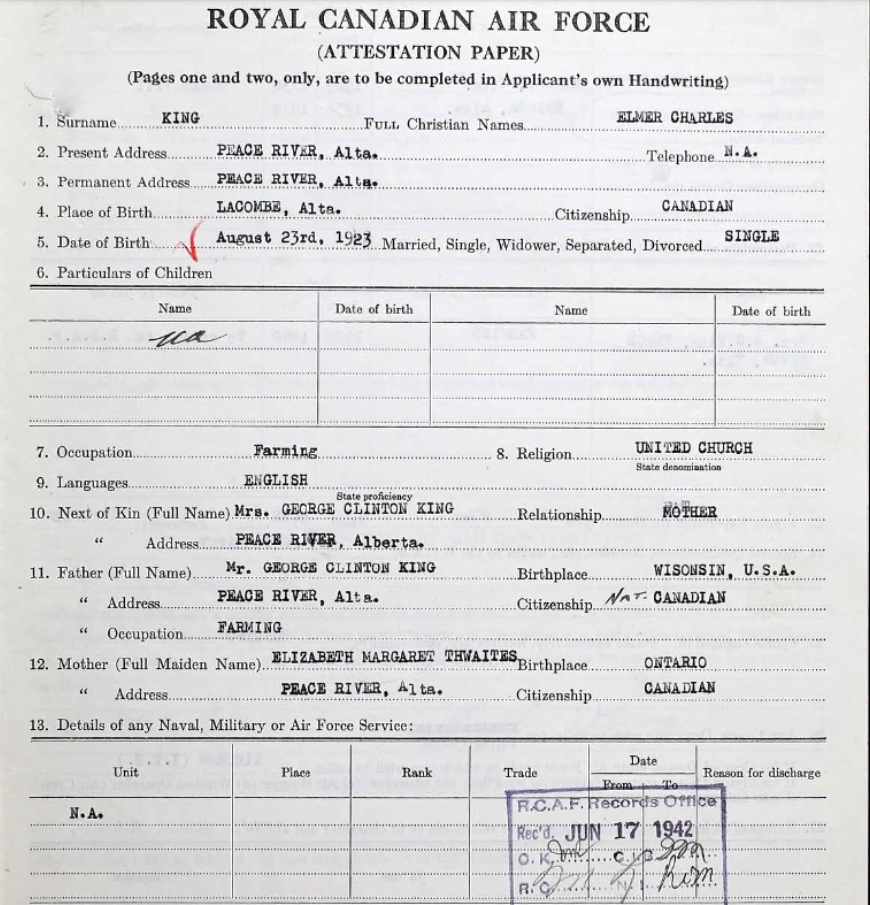 ROYAL CANADIAN AIR FORCE
(ATTESTATION PAPER)
(Pages one and two, only, are to be completed in Applicant's own Handwriting)
1. Surname KING FULL Christian Names ELMER CHARLES
2. Present Address PEACE RIVER, Alta. Telephone N.A.
3. Permanent Address PEACE RIVER, Alta.
4. Place of Birth LACOMBE, Alta. Citizenship CANADIAN
5. Date of Birth August 23rd, 1923 Married, Single, Widower, Separated, Divorced SINGLE
6. Particulars of Children
Name Date of birth Name Date of birth
na
7. Occupation Farming 8. Religion UNITED CHURCH
State denomination
9. Languages ENGLISH
State proficiency
10. Next of Kin (Full Name) Mrs. GEORGE CLINTON KING Relationship MOTHER
" Address PEACE RIVER, Alberta.
11. Father (Full Name) Mr. GEORGE CLINTON KING Birthplace WISONSIN, U.S.A.
" Address PEACE RIVER, Alta. Citizenship NAT. CANADIAN
" Occupation FARMING
12. Mother (Full Maiden Name) ELIZABETH MARGARET THWAITES Birthplace ONTARIO
" Address PEACE RIVER, Alta. Citizenship CANADIAN
13. Details of any Naval, Military or Air Force Service:
Unit Place Rank Trade Date Reason for discharge
From To
N.A.
R.C.A.F. Records Office
Rec'd. JUN 17 1942
O.K.
R.C.